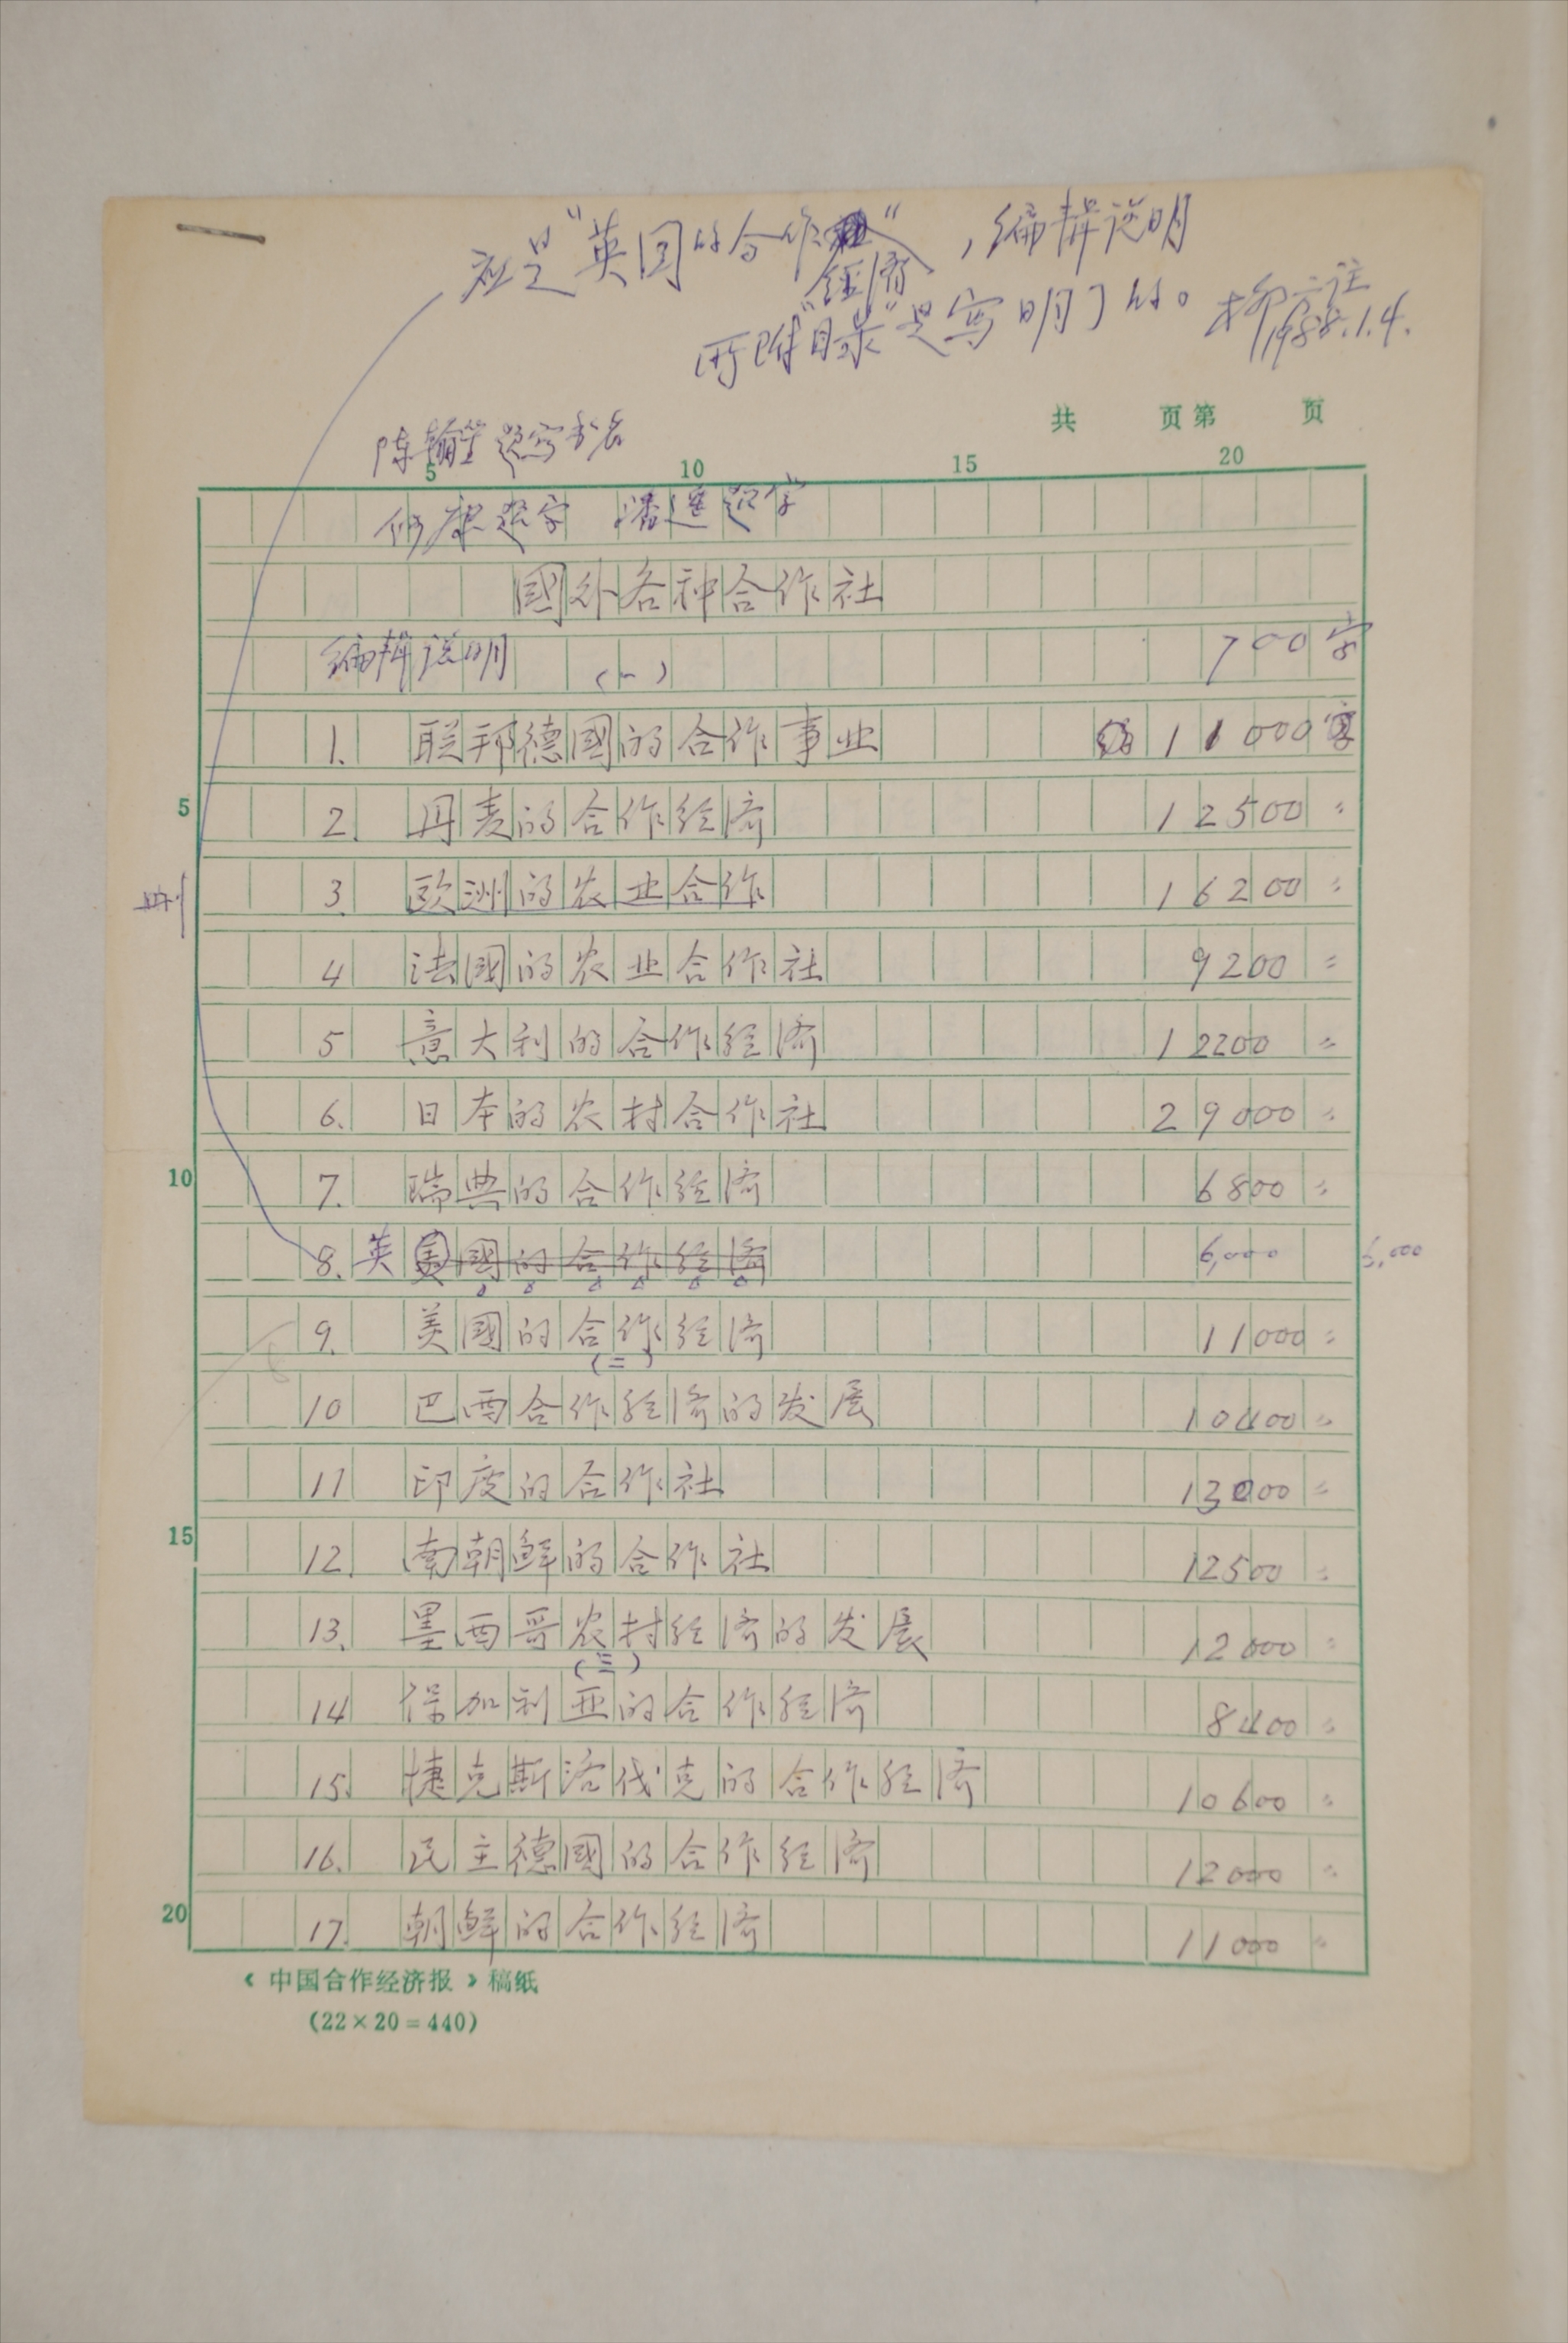 应是“英国的合作经济”，编辑说明
所附“目录”是写明了的。 柳 注
1988.1.4.
共 页 第 页
陈翰笙题写书名
5 10 15 20
何康题字 潘遥题字
國外各种合作社
编辑说明 700字
(一)
1. 联邦德國的合作事业 11000字
5
2. 丹麦的合作经济 12500〃
删
3. 欧洲的农业合作 16200〃
4 法國的农业合作社 9200〃
5 意大利的合作经济 12200〃
6. 日本的农村合作社 29000〃
10
7. 瑞典的合作经济 6800〃
8. 英國的合作经济 6,000 6,000
9. 美國的合作经济 11000〃
(二)
10 巴西合作经济的发展 10400〃
11 印度的合作社 13000〃
15
12. 南朝鲜的合作社 12500〃
13. 墨西哥农村经济的发展 12000〃
(三)
14 保加利亚的合作经济 8400〃
15. 捷克斯洛伐克的合作经济 10600〃
16. 民主德國的合作经济 12000〃
20
17. 朝鲜的合作经济 11000〃
《中国合作经济报》稿纸
(22×20=440)